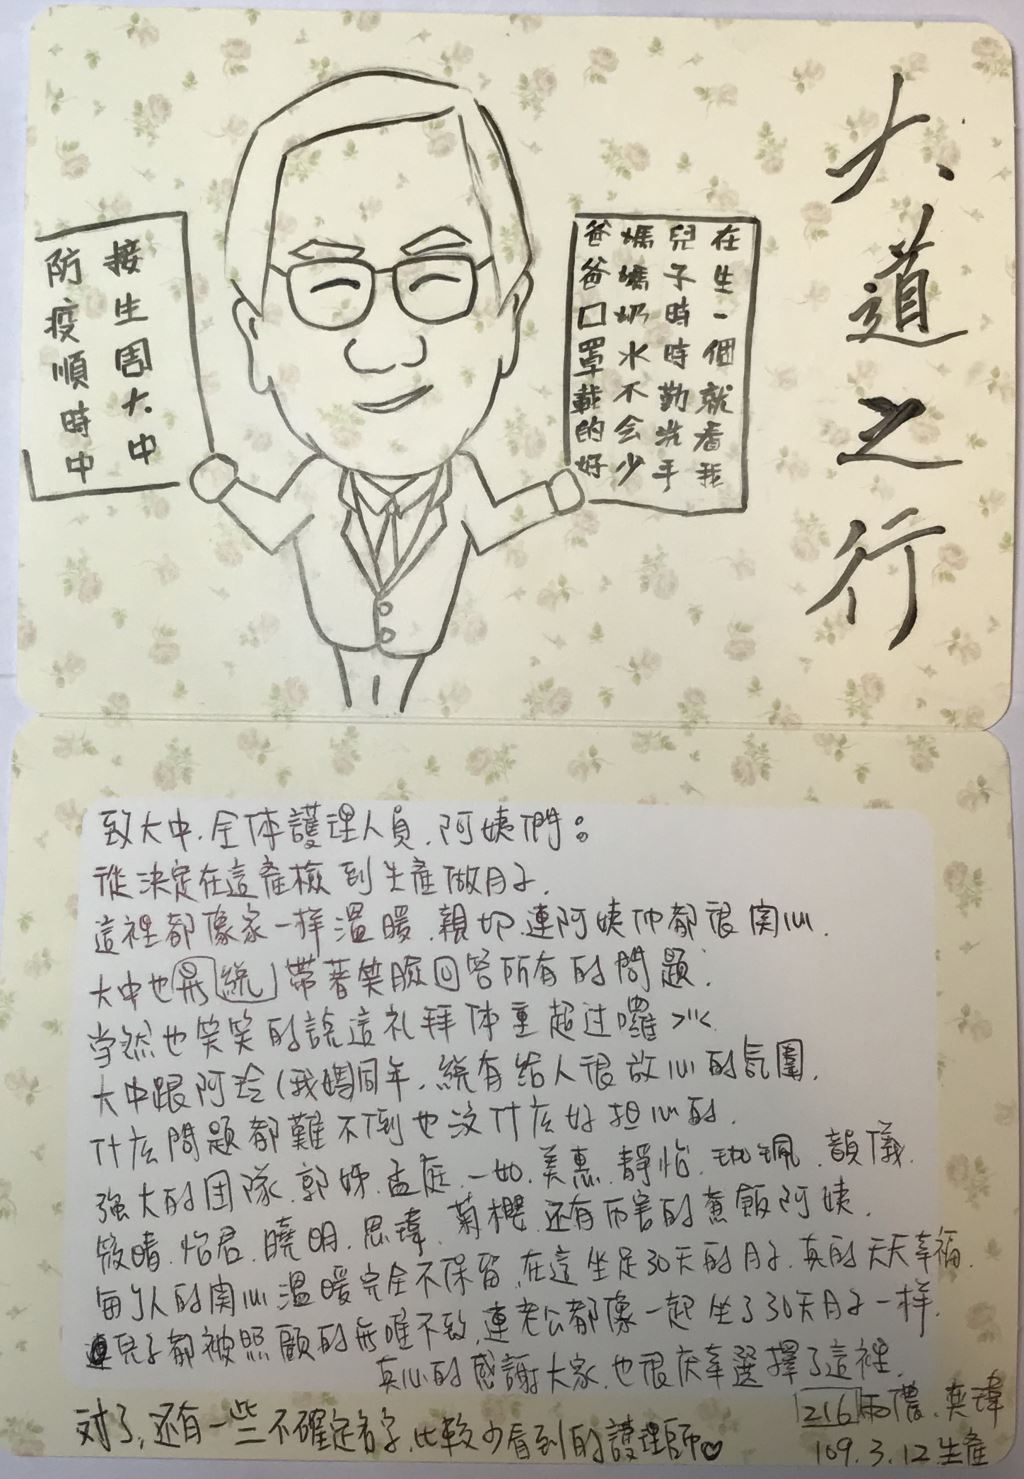 大道之行
在生一個就看我
兒子時時勤洗手
媽媽奶水不会少
爸爸口罩載的好
接生周大中
防疫順時中
致大中.全体護理人員.阿姨們:
從決定在這產檢到生產做月子.
這裡都像家一样溫暖.親切.連阿姨们都很関心.
大中也是總帶著笑臉回答所有的問題.
当然也笑笑的說這礼拜体重超过囉
大中跟阿玲(我媽同年.總有給人很放心的氛圍.
什広問題都難不倒也沒什広好担心的.
強大的团隊.郭姊.孟庭.一如.美惠.靜怡.珈珮.韻儀.
筱晴.怡君.曉明.思瑋.菊櫻.还有厉害的煮飯阿姨.
每个人的関心溫暖完全不保留.在這坐足30天的月子.真的天天幸福.
連兒子都被照顧的無唯不致.連老公都像一起坐了30天月子一样.
真心的感謝大家.也很庆幸選擇了這裡.
216雨儂.奕瑋
109.3.12.生產
对了,还有一些不確定名字,比較少看到的護理師♡